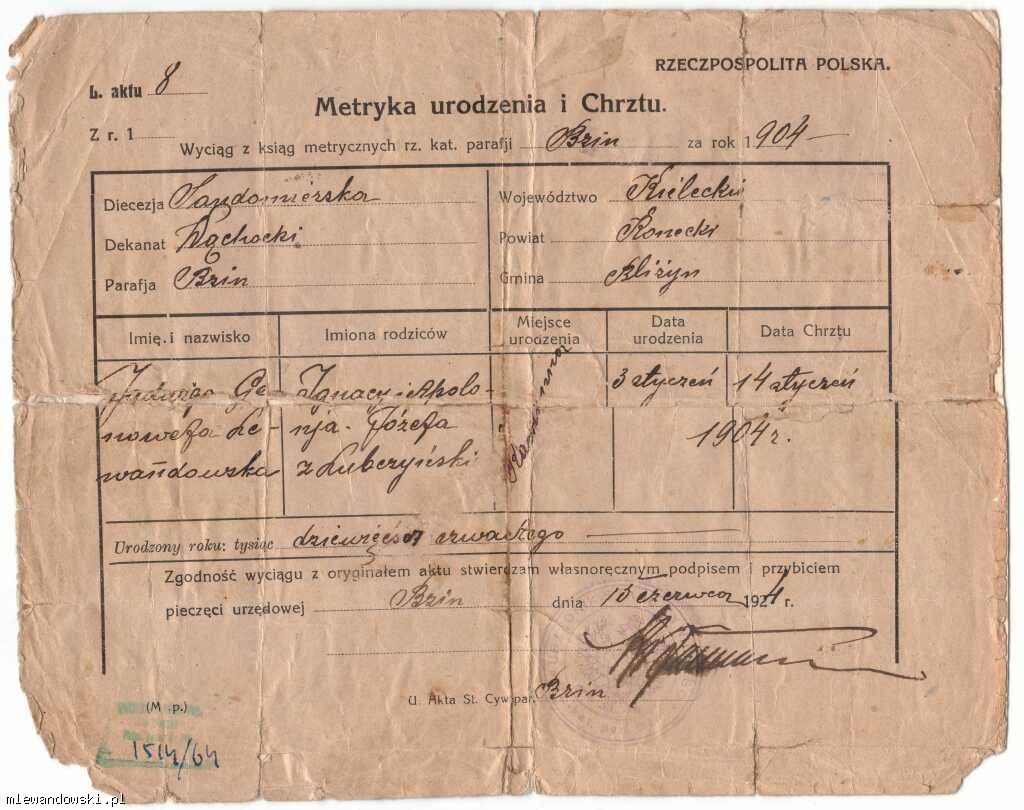 RZECZPOSPOLITA POLSKA.
L. aktu 8
Metryka urodzenia i Chrztu.
Z r. 1
Wyciąg z ksiąg metrycznych rz. kat. parafji Bzin za rok 1904
Diecezja Sandomierska
Województwo Kielecki
Dekanat Wąchocki
Powiat Konecki
Parafja Bzin
Gmina Bliżyn
Imię i nazwisko
Imiona rodziców
Miejsce urodzenia
Data urodzenia
Data Chrztu
Jadwiga Ge-
nowefa Le-
wandowska
Ignacy i Apolo-
nja-Józefa
z Lubczyński
Kamienna
3 styczeń
14 styczeń
1904 r.
Urodzony roku: tysiąc dziewięćset czwartego
Zgodność wyciągu z oryginałem aktu stwierdzam własnoręcznym podpisem i przybiciem
pieczęci urzędowej Bzin dnia 15 czerwca 1924 r.
U. Akta St. Cyw. par. Bzin
(M. p.)
1514/64
mlewandowski.pl